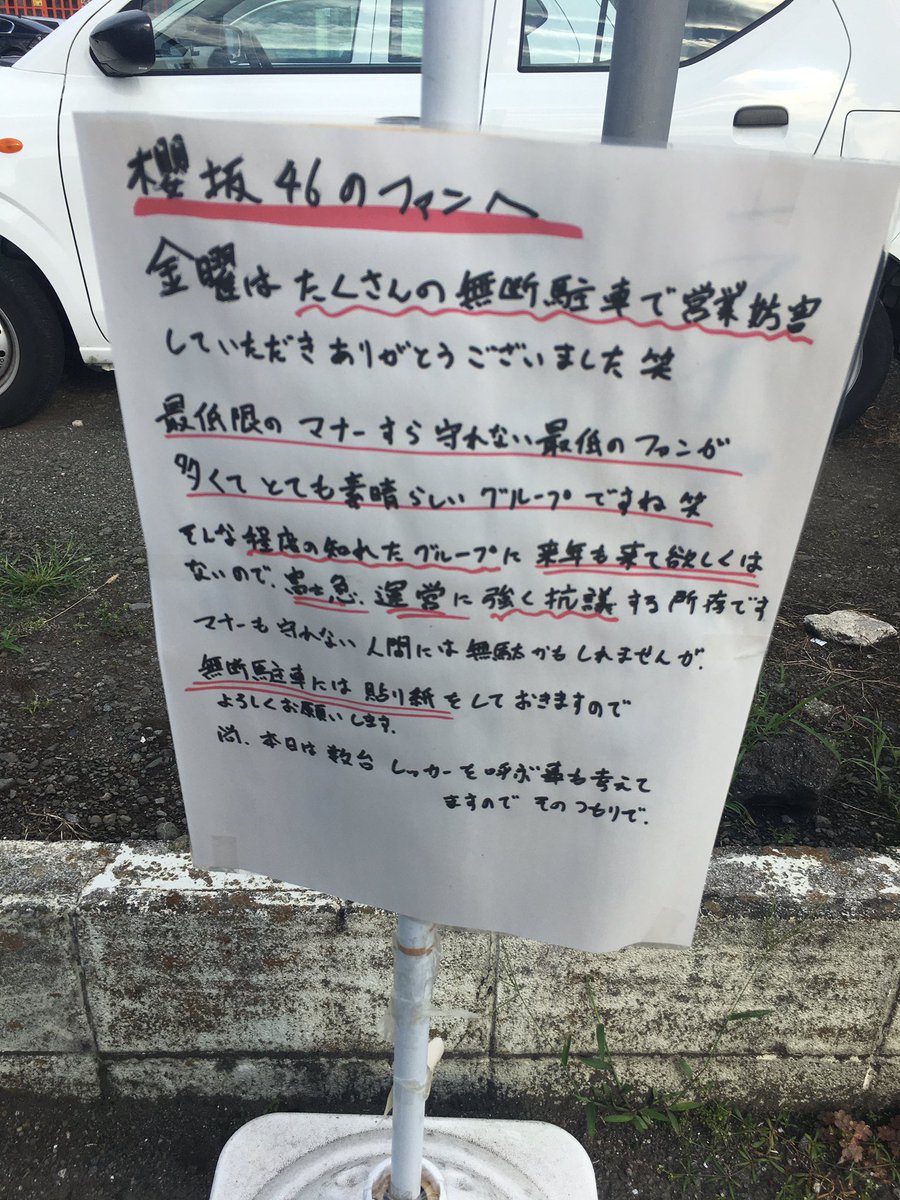 櫻坂46のファンへ
金曜は たくさんの無断駐車で営業妨害
していただき ありがとうございました 笑
最低限の マナーすら守れない最低の ファンが
多くて とても素晴らしい グループですね 笑
そんな程度の知れたグループに 来年も来て欲しくは
ないので、富士急、運営に強く抗議する所存です
マナーも守れない 人間には無駄かもしれませんが、
無断駐車には貼り紙をしておきますので
よろしくお願いします。
尚、本日は数台 レッカーを呼ぶ事も考えて
ますので そのつもりで。